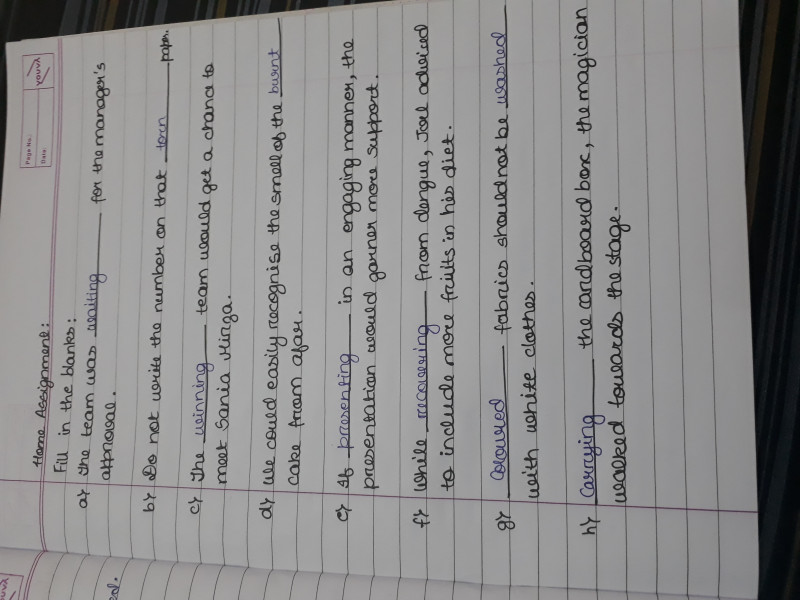 Page No.:
Date:
YOUVA
Home Assignment:
Fill in the blanks:
a) The team was waiting for the manager's
approval.
b) Do not write the number on that torn paper.
c) The winning team would get a chance to
meet Sania Mirza.
d) We could easily recognise the smell of the burnt
cake from afar.
e) If presenting in an engaging manner, the
presentation would garner more support.
f) While recovering from dengue, Joel adviced
to include more fruits in his diet.
g) Coloured fabrics should not be washed
with white clothes.
h) Carrying the cardboard box, the magician
walked towards the stage.